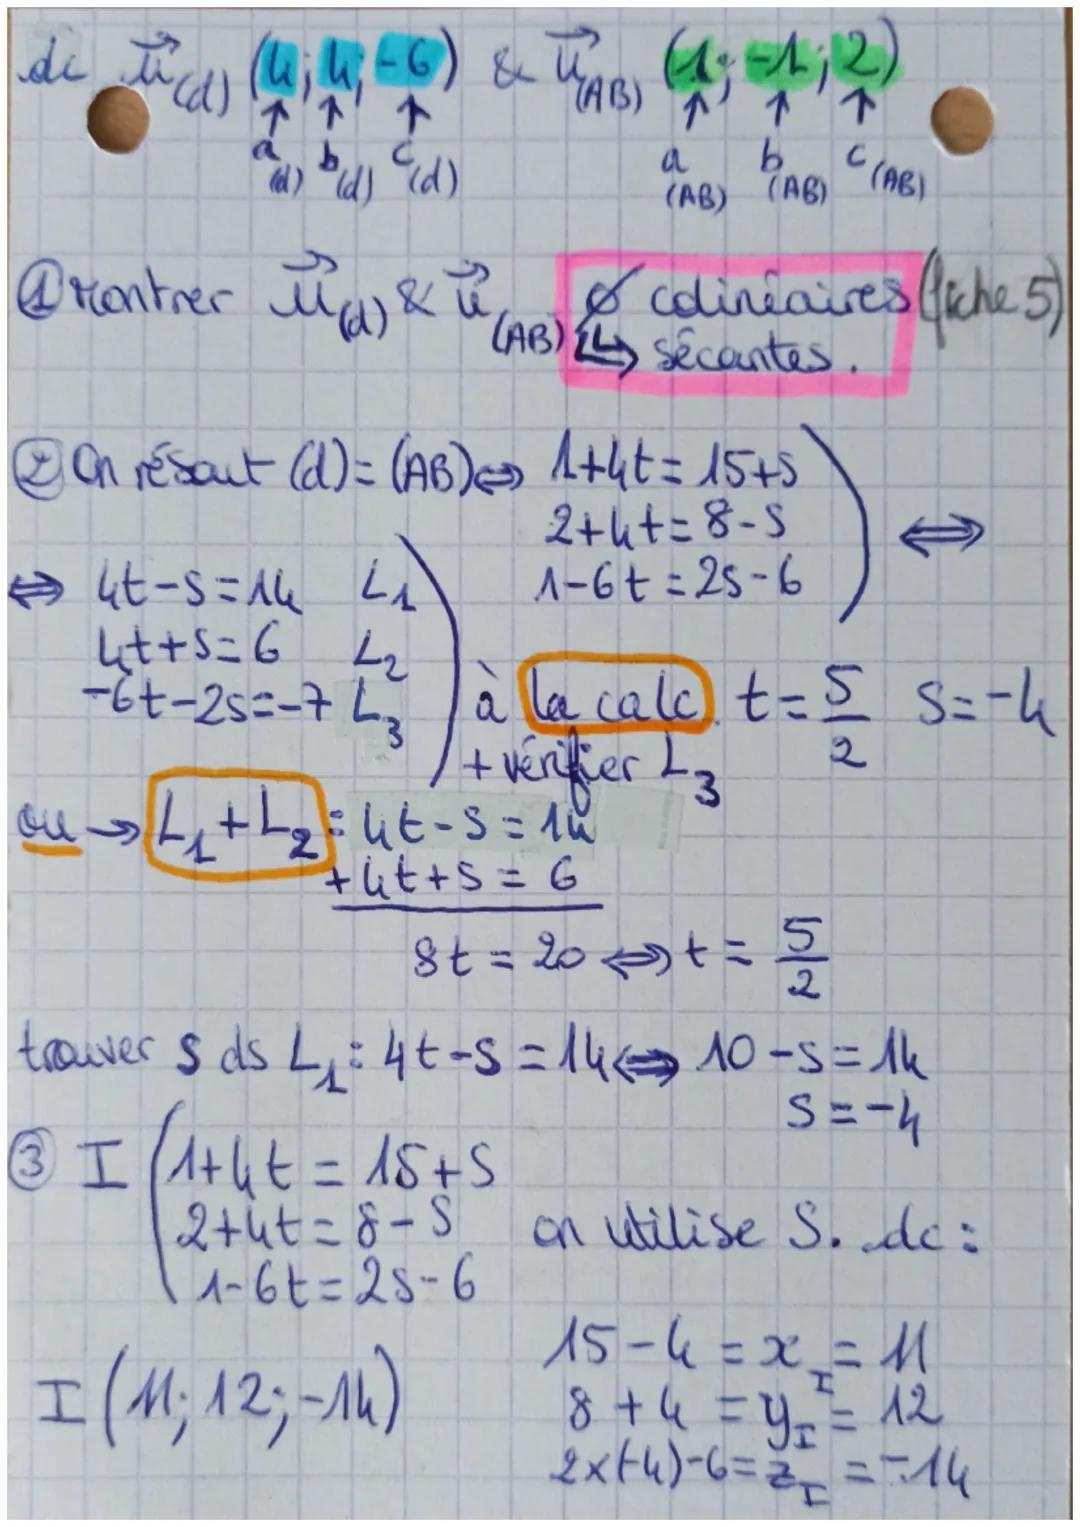 dc u⃗(d) (4; 4; -6) & u⃗(AB) (1; -1; 2)
↑ ↑ ↑ ↑ ↑ ↑
a(d) b(d) c(d) a(AB) b(AB) c(AB)
① montrer u⃗(d) & u⃗(AB) ∅ colinéaires (fiche 5)
↳ sécantes.
② On résout (d) = (AB) ⇔ 1+4t = 15+s
2+4t = 8-s ⇔
1-6t = 2s-6
⇔ 4t-s=14 L1
4t+s=6 L2
-6t-2s=-7 L3 à la calc. t=5/2 s=-4
+ vérifier L3
ou → L1+L2 = 4t-s = 14
+4t+s = 6
8t = 20 ⇔ t = 5/2
trouver s ds L1 : 4t-s = 14 ⇔ 10-s = 14
s = -4
③ I (1+4t = 15+s
2+4t = 8-s on utilise s. dc :
1-6t = 2s-6
15-4 = xI = 11
I (11; 12; -14) 8+4 = yI = 12
2×(-4)-6 = zI = -14